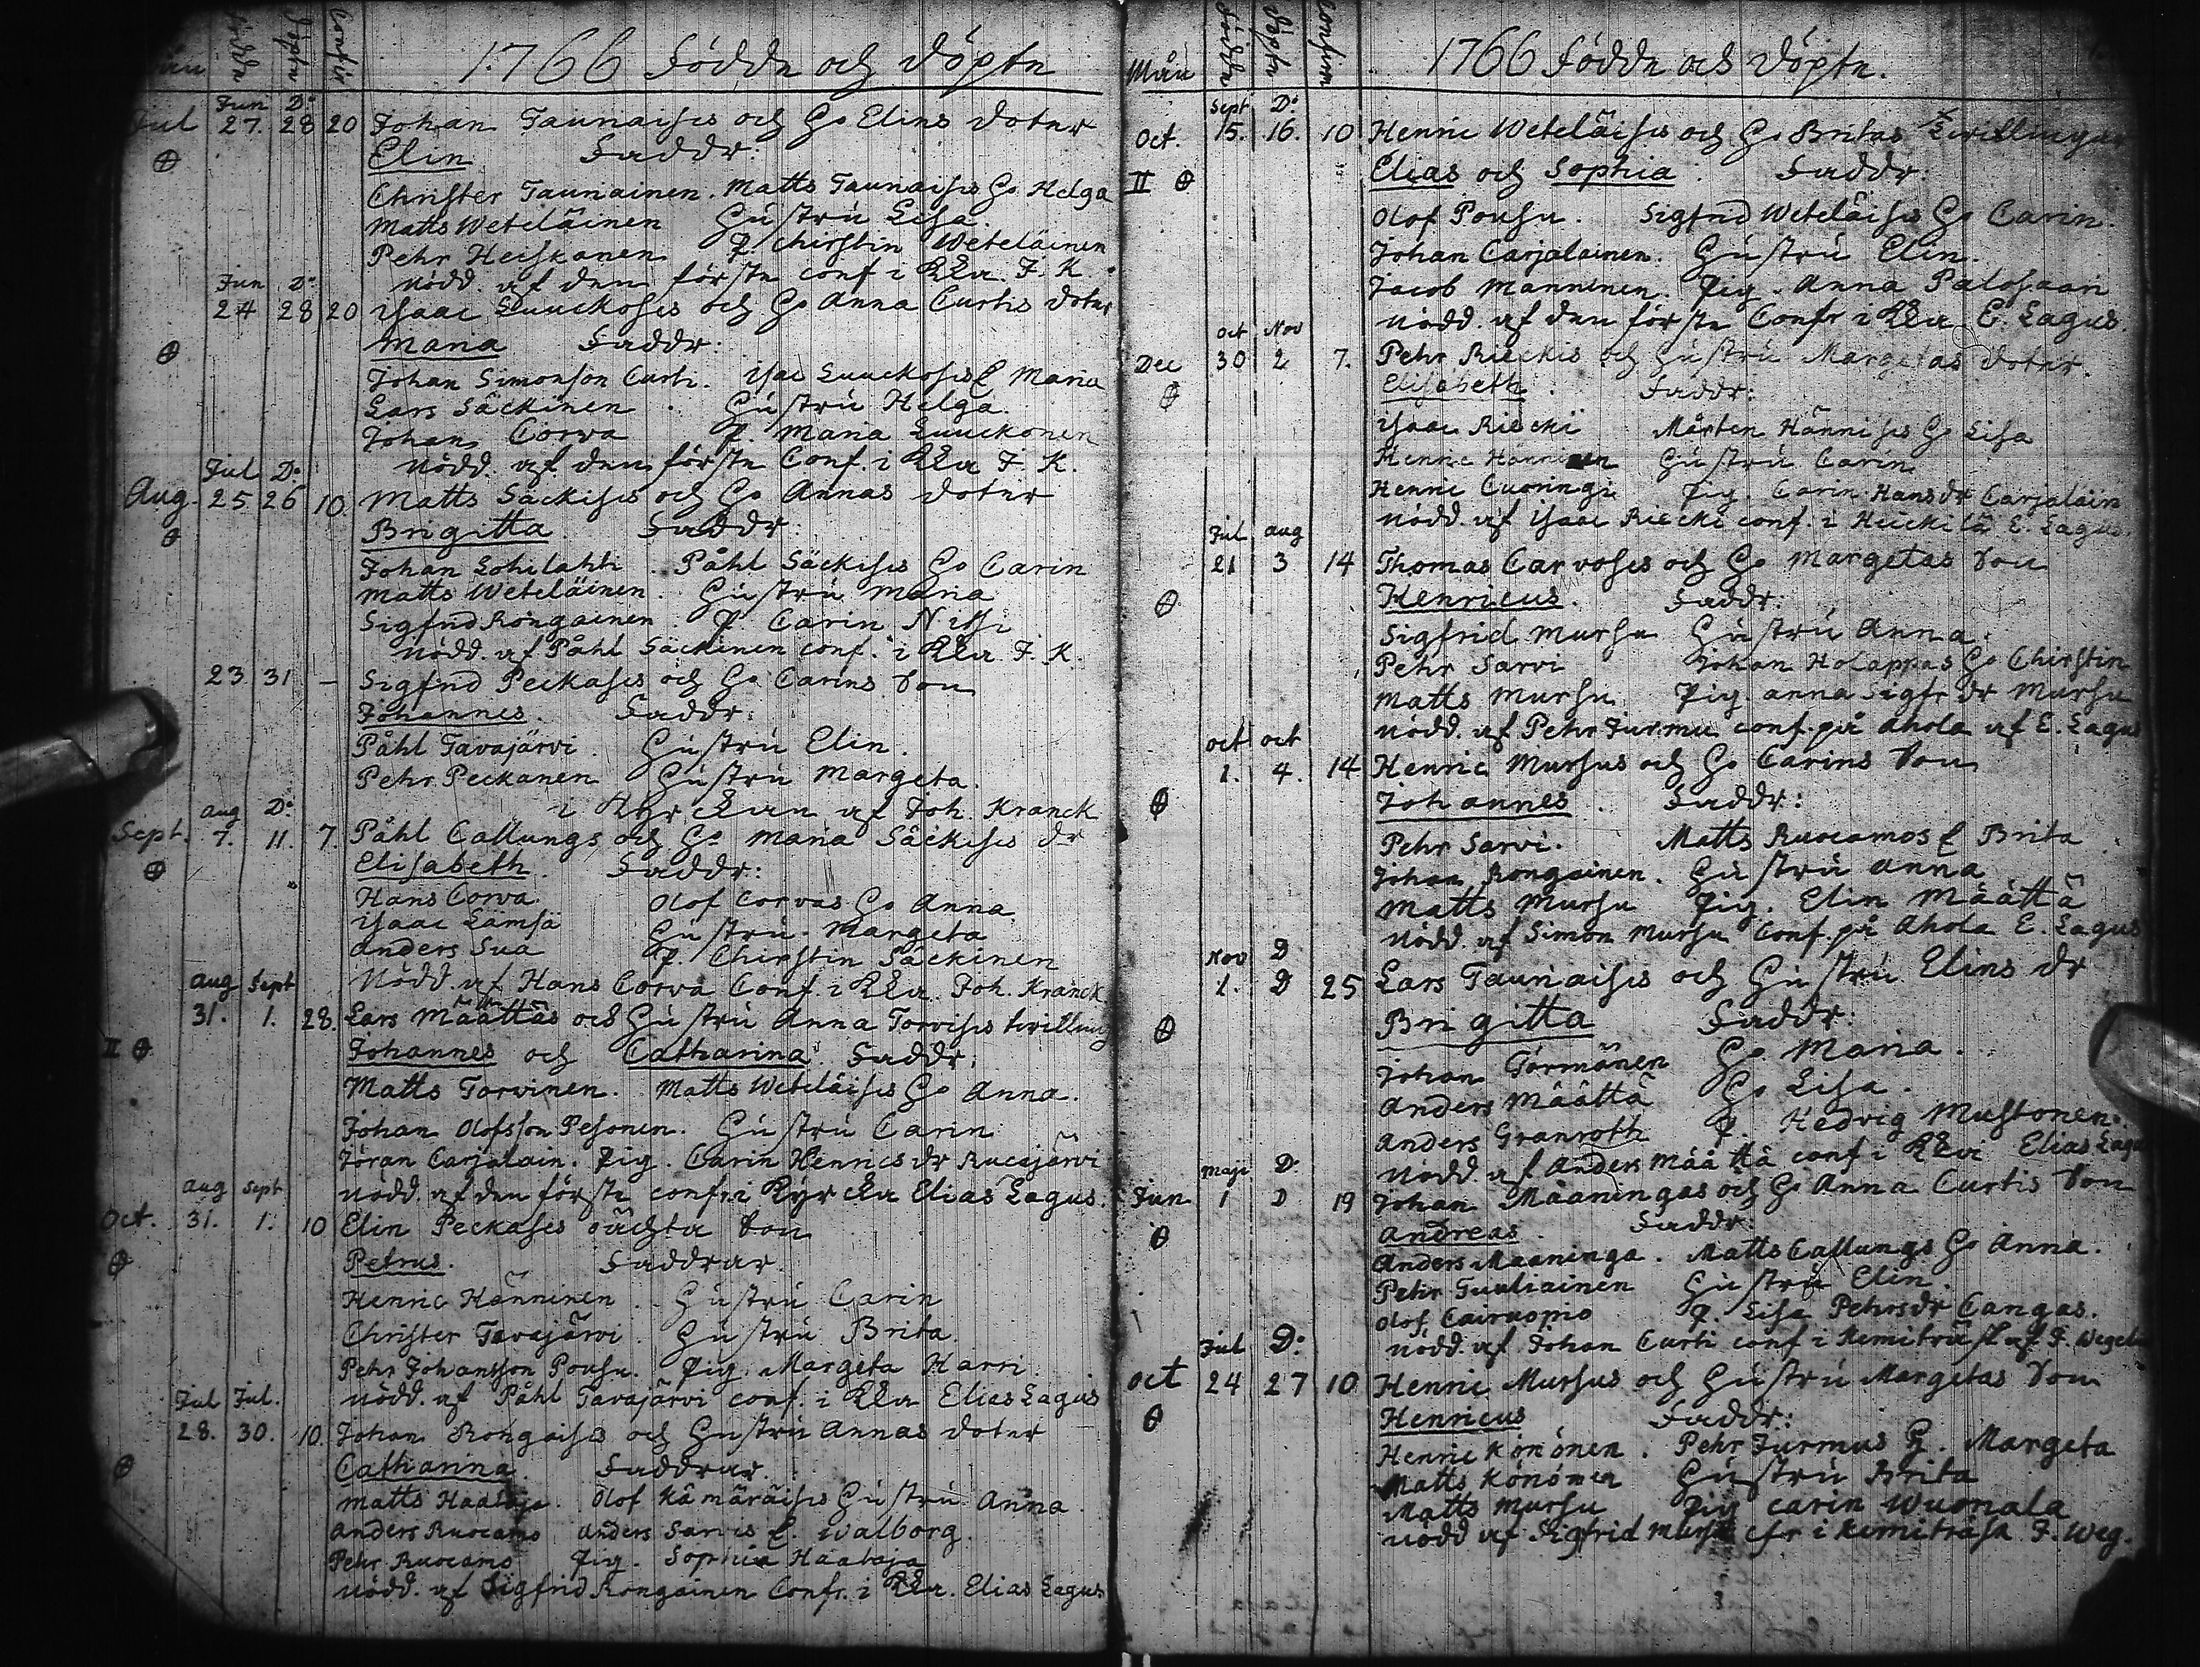 Mån Födde Döpte Confir 1766 Födde och Döpte
Juni D:o
Jul 27. 28 20 Johan Taunaises och Hu Elins dotter
Elin Faddr:
Christer Taunainen. Matts Taunaises Hu Helga
Matts Weteläinen Hustru Lisa
Pehr Heiskanen P. Chirstin Weteläinen
nödd. af den förste conf i Kka J. K.
Jun D:o
24 28 20 Isaac Luuckoses och Hu Anna Curtis dotter
Maria Faddr:
Johan Simonson Curti. Isac Luuckoses H Maria
Lars Säckinen. Hustru Helga.
Johan Corwa P. Maria Luuckonen
nödd. af den förste Conf. i Kka J. K.
Jul D:o
Aug. 25 26 10 Matts Säckises och Hu Annas dotter
Brigitta Faddr:
Johan Lohilahti. Påhl Säckises Hu Carin
Matts Weteläinen. Hustru Maria
Sigfrid Rongainen. P Carin
nödd. af Påhl Säckinen conf. i Kka J. K.
23 31 – Sigfrid Peckases och Hu Carins Son
Johannes. Faddr:
Påhl Tavajärvi. Hustru Elin.
Pehr Peckanen Hustru Margeta.
i Kyrckan af Joh. Kranck
Aug D:o
Sept. 7. 11. 7. Påhl Callungs och Hu Maria Säckises dr
Elisabeth. Faddr:
Hans Corva. Olof Corvas Hu Anna
Isaac Lämsä Hustru Margeta
Anders Sua P. Chirstin Säckinen
Nödd. af Hans Corva Conf. i Kka Joh. Kranck
Aug Sept
31. 1. 28. Lars Määttäs och Hustru Anna Torvises twilling
II Johannes och Catharina Faddr:
Matts Torvinen. Matts Weteläises Hu Anna.
Johan Olofsson Pesonen. Hustru Carin
Jöran Carjalain. Pig. Carin Henrics dr Rucajärvi
nödd. af den förste confr. i Kyrcka Elias Lagus.
Aug Sept
Oct. 31. 1. 10 Elin Peckases oächta Son
Petrus. Faddrar.
Henric Hänninen. Hustru Carin
Christer Tavajärvi. Hustru Brita
Pehr Johansson Pousu. Pig. Margeta Harri
nödd. af Påhl Tavajärvi conf. i Kka Elias Lagus
Jul Jul.
28. 30. 10. Johan Rongaises och Hustru Annas dotter
Catharina. Faddrar.
Matts Haataja. Olof Kämäräises Hustru Anna
Anders Ruocamo Anders Sarvis H. Walborg.
Pehr Ruocamo Pig. Sophia Haataja
nödd. af Sigfrid Rongainen Confr. i Kka. Elias Lagus
Mån Födde Döpte Confirm 1766 Födde och Döpte.
Sept D:o
Oct. 15. 16. 10 Henric Weteläises och Hu Britas Twillingar
II Elias och Sophia. Faddr
Olof Pousu. Sigfrid Weteläises Hu Carin.
Johan Carjalainen. Hustru Elin.
Jacob Manninen. Pig. Anna Palosaari
nödd. af den förste Confr i Kka E. Lagus.
Oct Nov
Dec 30 2 7. Pehr Rieckis och Hustru Margetas dotter.
Elisabeth. Faddr:
Isaac Riecki Mårten Hännises Hu Lisa
Henric Hänninen Hustru Carin
Henric Cuoringi Pig. Carin Hansdr Carjalain
nödd. af Isaac Riecki conf. i Heickilä E. Lagus.
Jul Aug
21 3 14 Thomas Carvoses och Hu Margetas Son
Henricus. Faddr:
Sigfrid Mursu Hustru Anna.
Pehr Sarvi Johan Holappas Hu Chirstin
Matts Mursu Pig Anna Sigfr dr Mursu
nödd. af Pehr Jurmu conf. på Ahola af E. Lagus
Oct Oct
1. 4. 14 Henric Mursus och Hu Carins Son
Johannes. Faddr:
Pehr Sarvi. Matts Ruocamos H Brita
Johan Rongainen. Hustru Anna
Matts Mursu Pig. Elin Määttä
nödd. af Simon Mursu Conf. på Ahola E. Lagus
Nov D
1. D 25 Lars Taunaises och Hustru Elins dr
Brigitta Faddr:
Johan Törmänen Hu Maria.
Anders Määttä Hu Lisa.
Anders Granroth P Hedvig Mustonen.
nödd. af Anders Määttä conf i Kka Elias Lagus
Maji D:o
Jun 1 D 19 Johan Måaningas och Hu Anna Curtis Son
Andreas. Faddr:
Anders Maaninga. Matts Callungs Hu Anna.
Pehr Tuuliainen Hustru Elin.
Olof Cairuopio P. Lisa Pehrsdr Cangas.
nödd. af Johan Curti conf i Kemiträsk af J. Wegelius
Jul D:o
Oct 24 27 10 Henric Mursus och Hustru Margetas Son
Henricus Faddr:
Henric Könönen. Pehr Jurmus H. Margeta
Matts Könönen Hustru Brita
Matts Mursu Pig Carin Wuonala
nödd af Sigfrid Mursu cfr i Kemiträsk J. Weg.